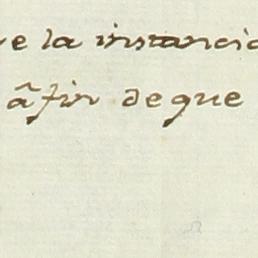 e la instancia
â fin de que